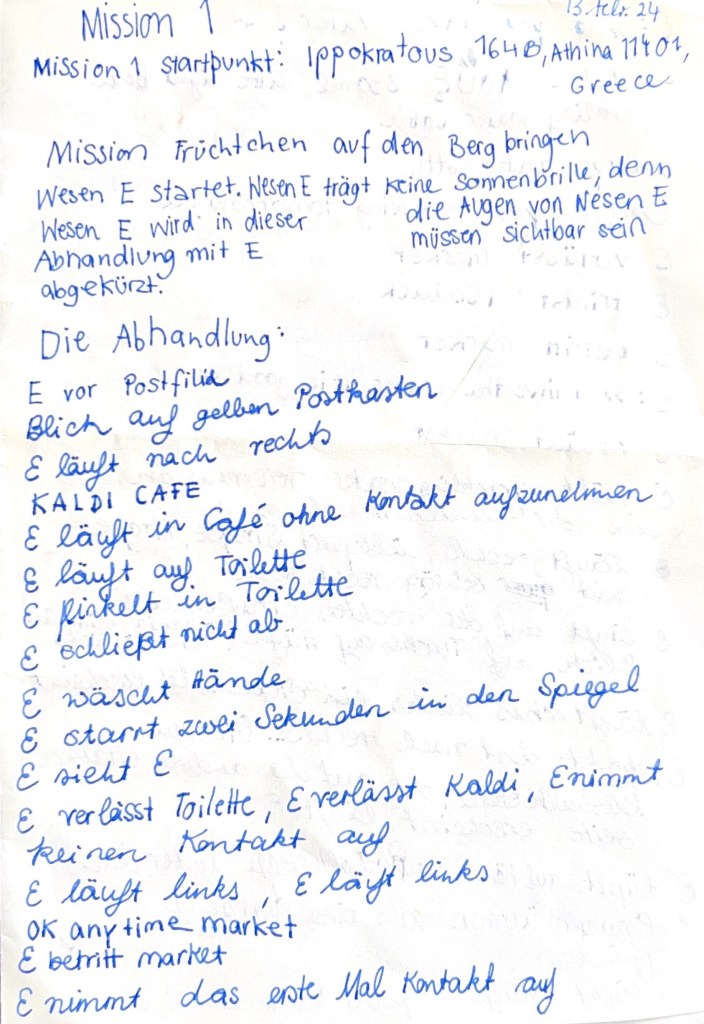 13. Febr. 24
Mission 1
Mission 1 startpunkt: Ippokratous 164B, Athina 11401,
Greece
Mission Früchtchen auf den Berg bringen
Wesen E startet. Wesen E trägt keine Sonnenbrille, denn
die Augen von Wesen E
müssen sichtbar sein
Wesen E wird in dieser
Abhandlung mit E
abgekürzt.
Die Abhandlung:
E vor Postfilia
Blick auf gelben Postkasten
E läuft nach rechts
KALDI CAFE
E läuft in Café ohne Kontakt aufzunehmen
E läuft auf Toilette
E pinkelt in Toilette
E schließt nicht ab
E wäscht Hände
E starrt zwei Sekunden in den Spiegel
E sieht E
E verlässt Toilette, E verlässt Kaldi, E nimmt
keinen Kontakt auf
E läuft links, E läuft links
OK anytime market
E betritt market
E nimmt das erste Mal Kontakt auf